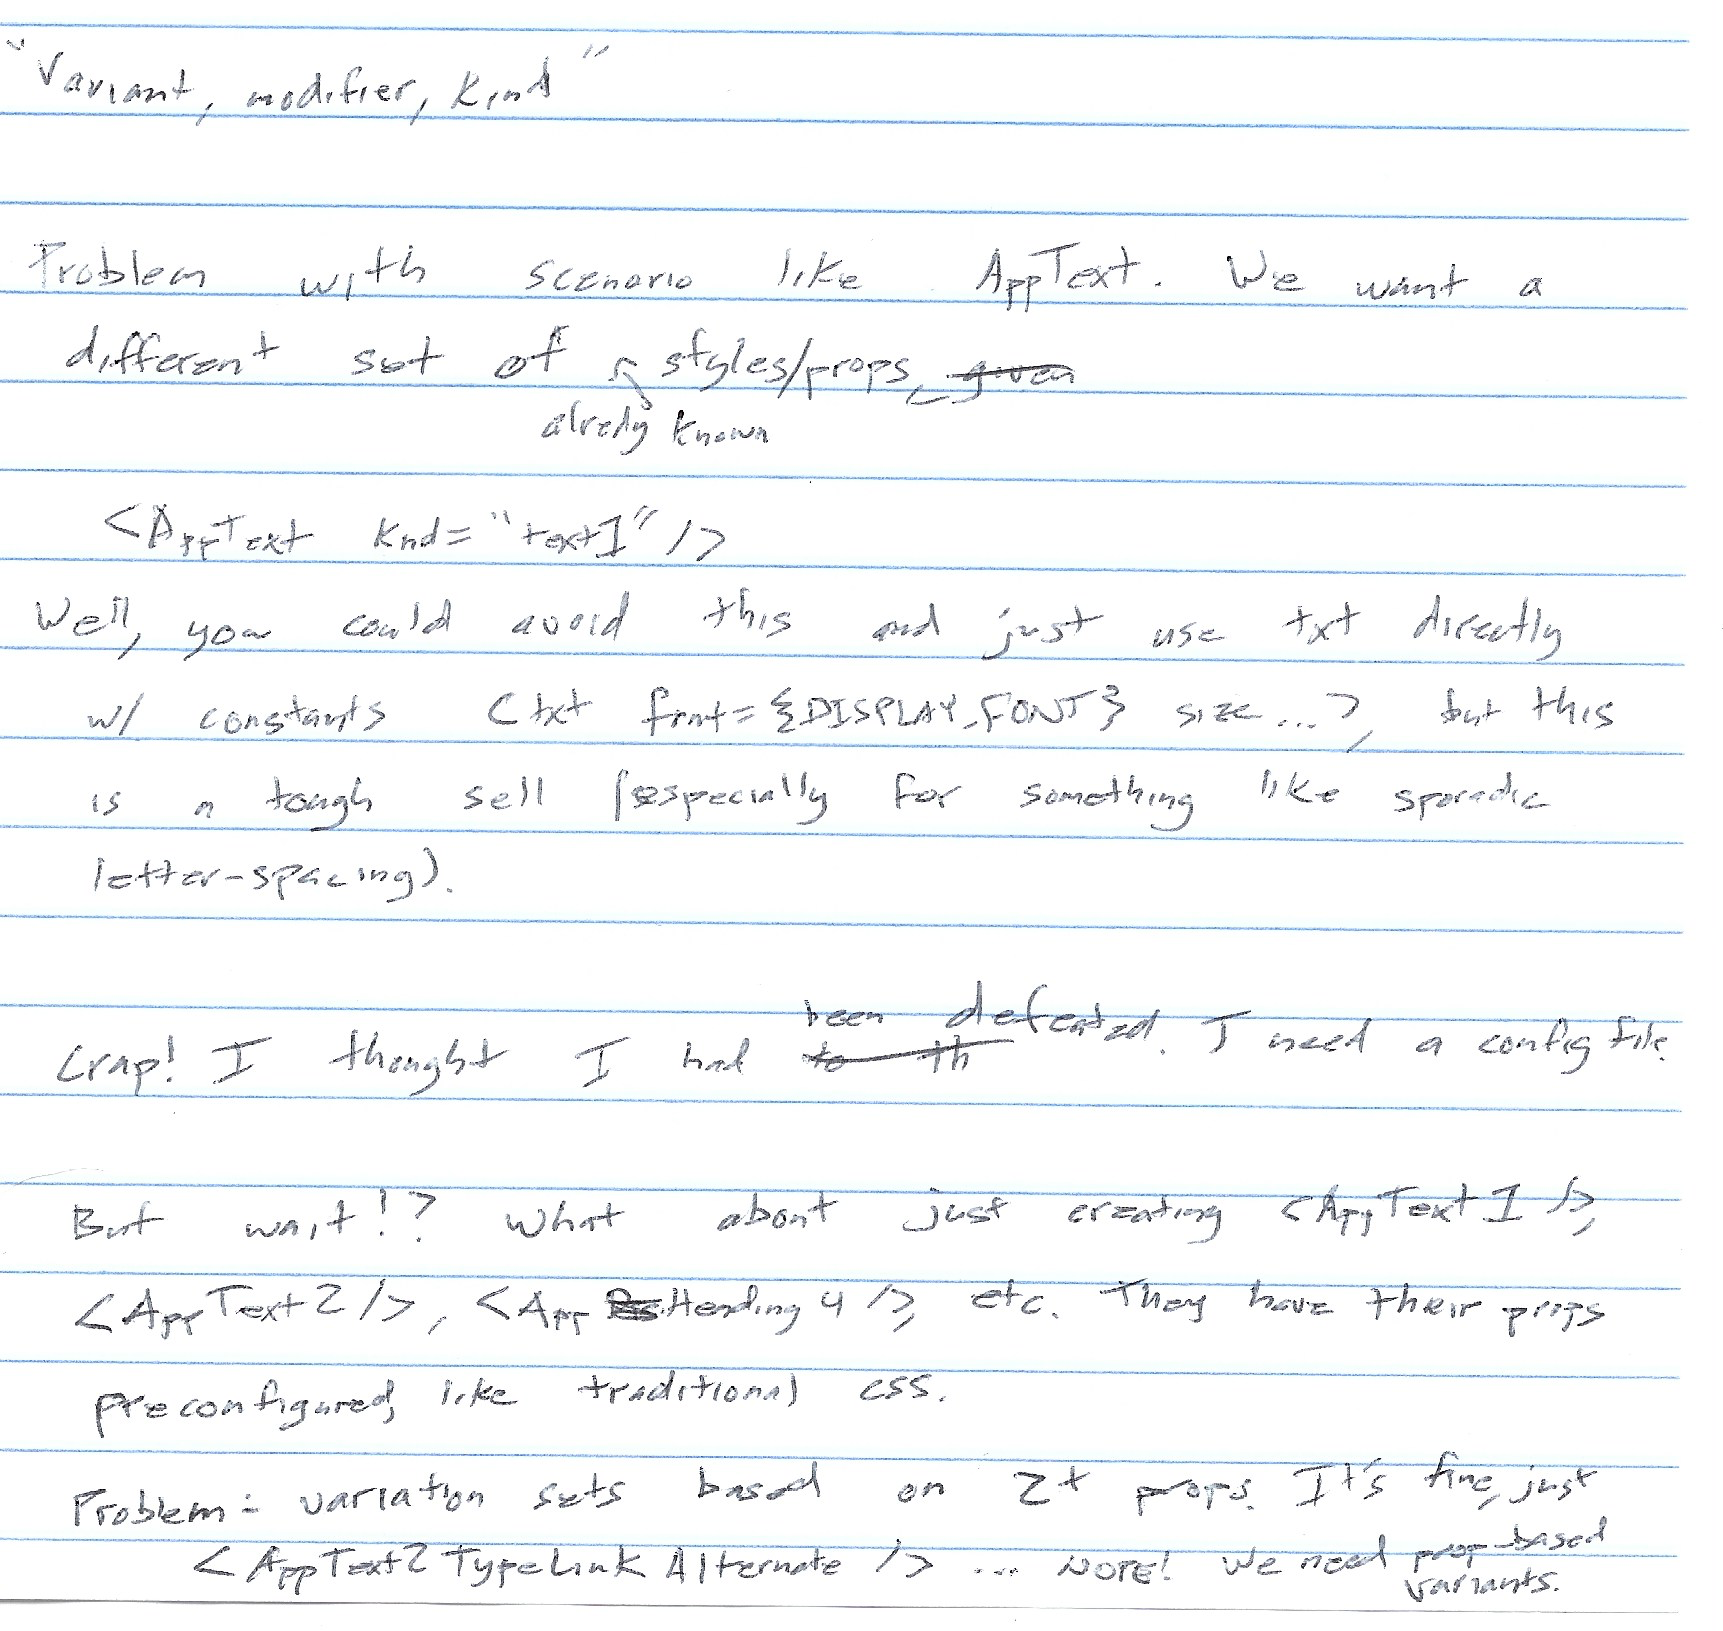 "Variant, modifier, kind"
Problem with scenario like AppText. We want a
different set of styles/props, given
alredy known
<AppText knd="text1" />
Well, you could avoid this and just use txt directly
w/ constants <txt font={DISPLAY_FONT} size...>, but this
is a tough sell (especially for something like sporadic
letter-spacing).
been defeated. I need a config file.
Crap! I thought I had to th
But wait!? What about just creating <AppText1 />,
<AppText2 />, <App Heading4 />, etc. They have their props
preconfigured, like traditional css.
Problem: variation sets based on 2+ props. It's fine, just
<AppText2TypeLinkAlternate /> ... NOPE! We need prop-based
variants.